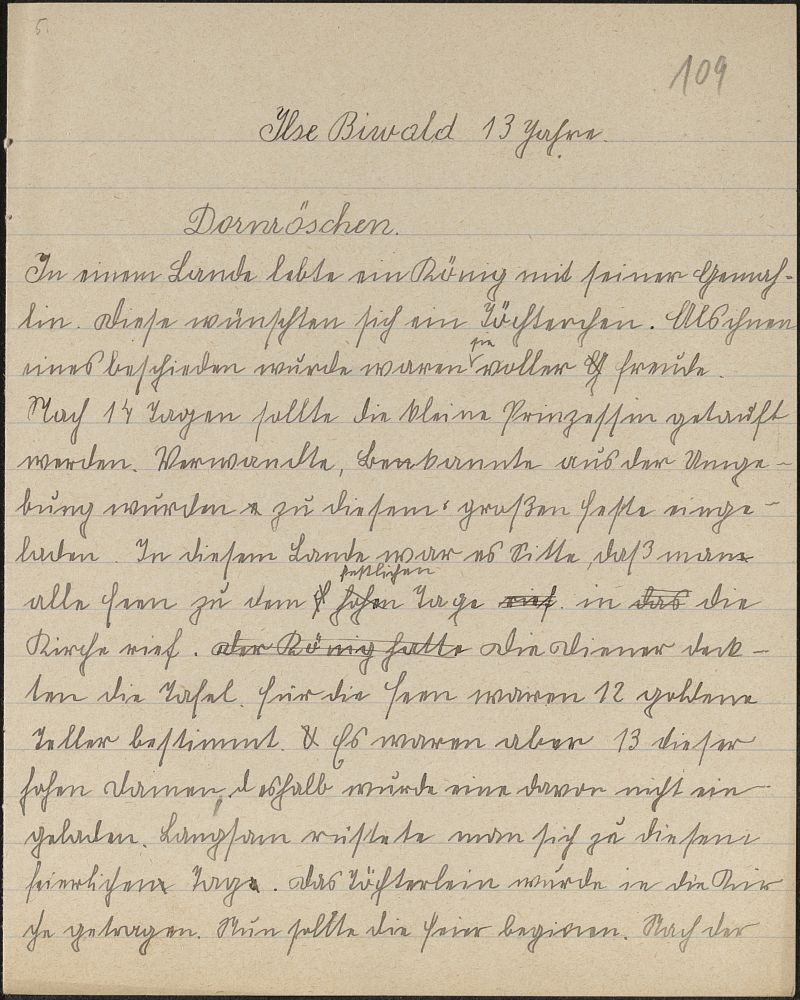 5.
109
Ilse Biwald 13 Jahre.
Dornröschen.
In einem Lande lebte ein König mit seiner Gemah-
lin. Diese wünschten sich ein Töchterchen. Als ihnen
sie
eines beschieden wurde waren voller Freude.
Nach 14 Tagen sollte die kleine Prinzessin getauft
werden. Verwandte, Benkannte aus der Umge-
bung wurden zu diesem großen Feste einge-
laden. In diesem Lande war es Sitte, daß man
festlichen
alle Feen zu dem hohen Tage rief in das die
Kirche rief. der König hatte Die Diener deck-
ten die Tafel. Für die Feen waren 12 goldene
Teller bestimmt. Es waren aber 13 dieser
hohen Damen, deshalb wurde eine davon nicht ein
geladen. Langsam rüstete man sich zu diesem
feierlichen Tage. Das Töchterlein wurde in die Kir
che getragen. Nun sollte die Feier beginnen. Nach der